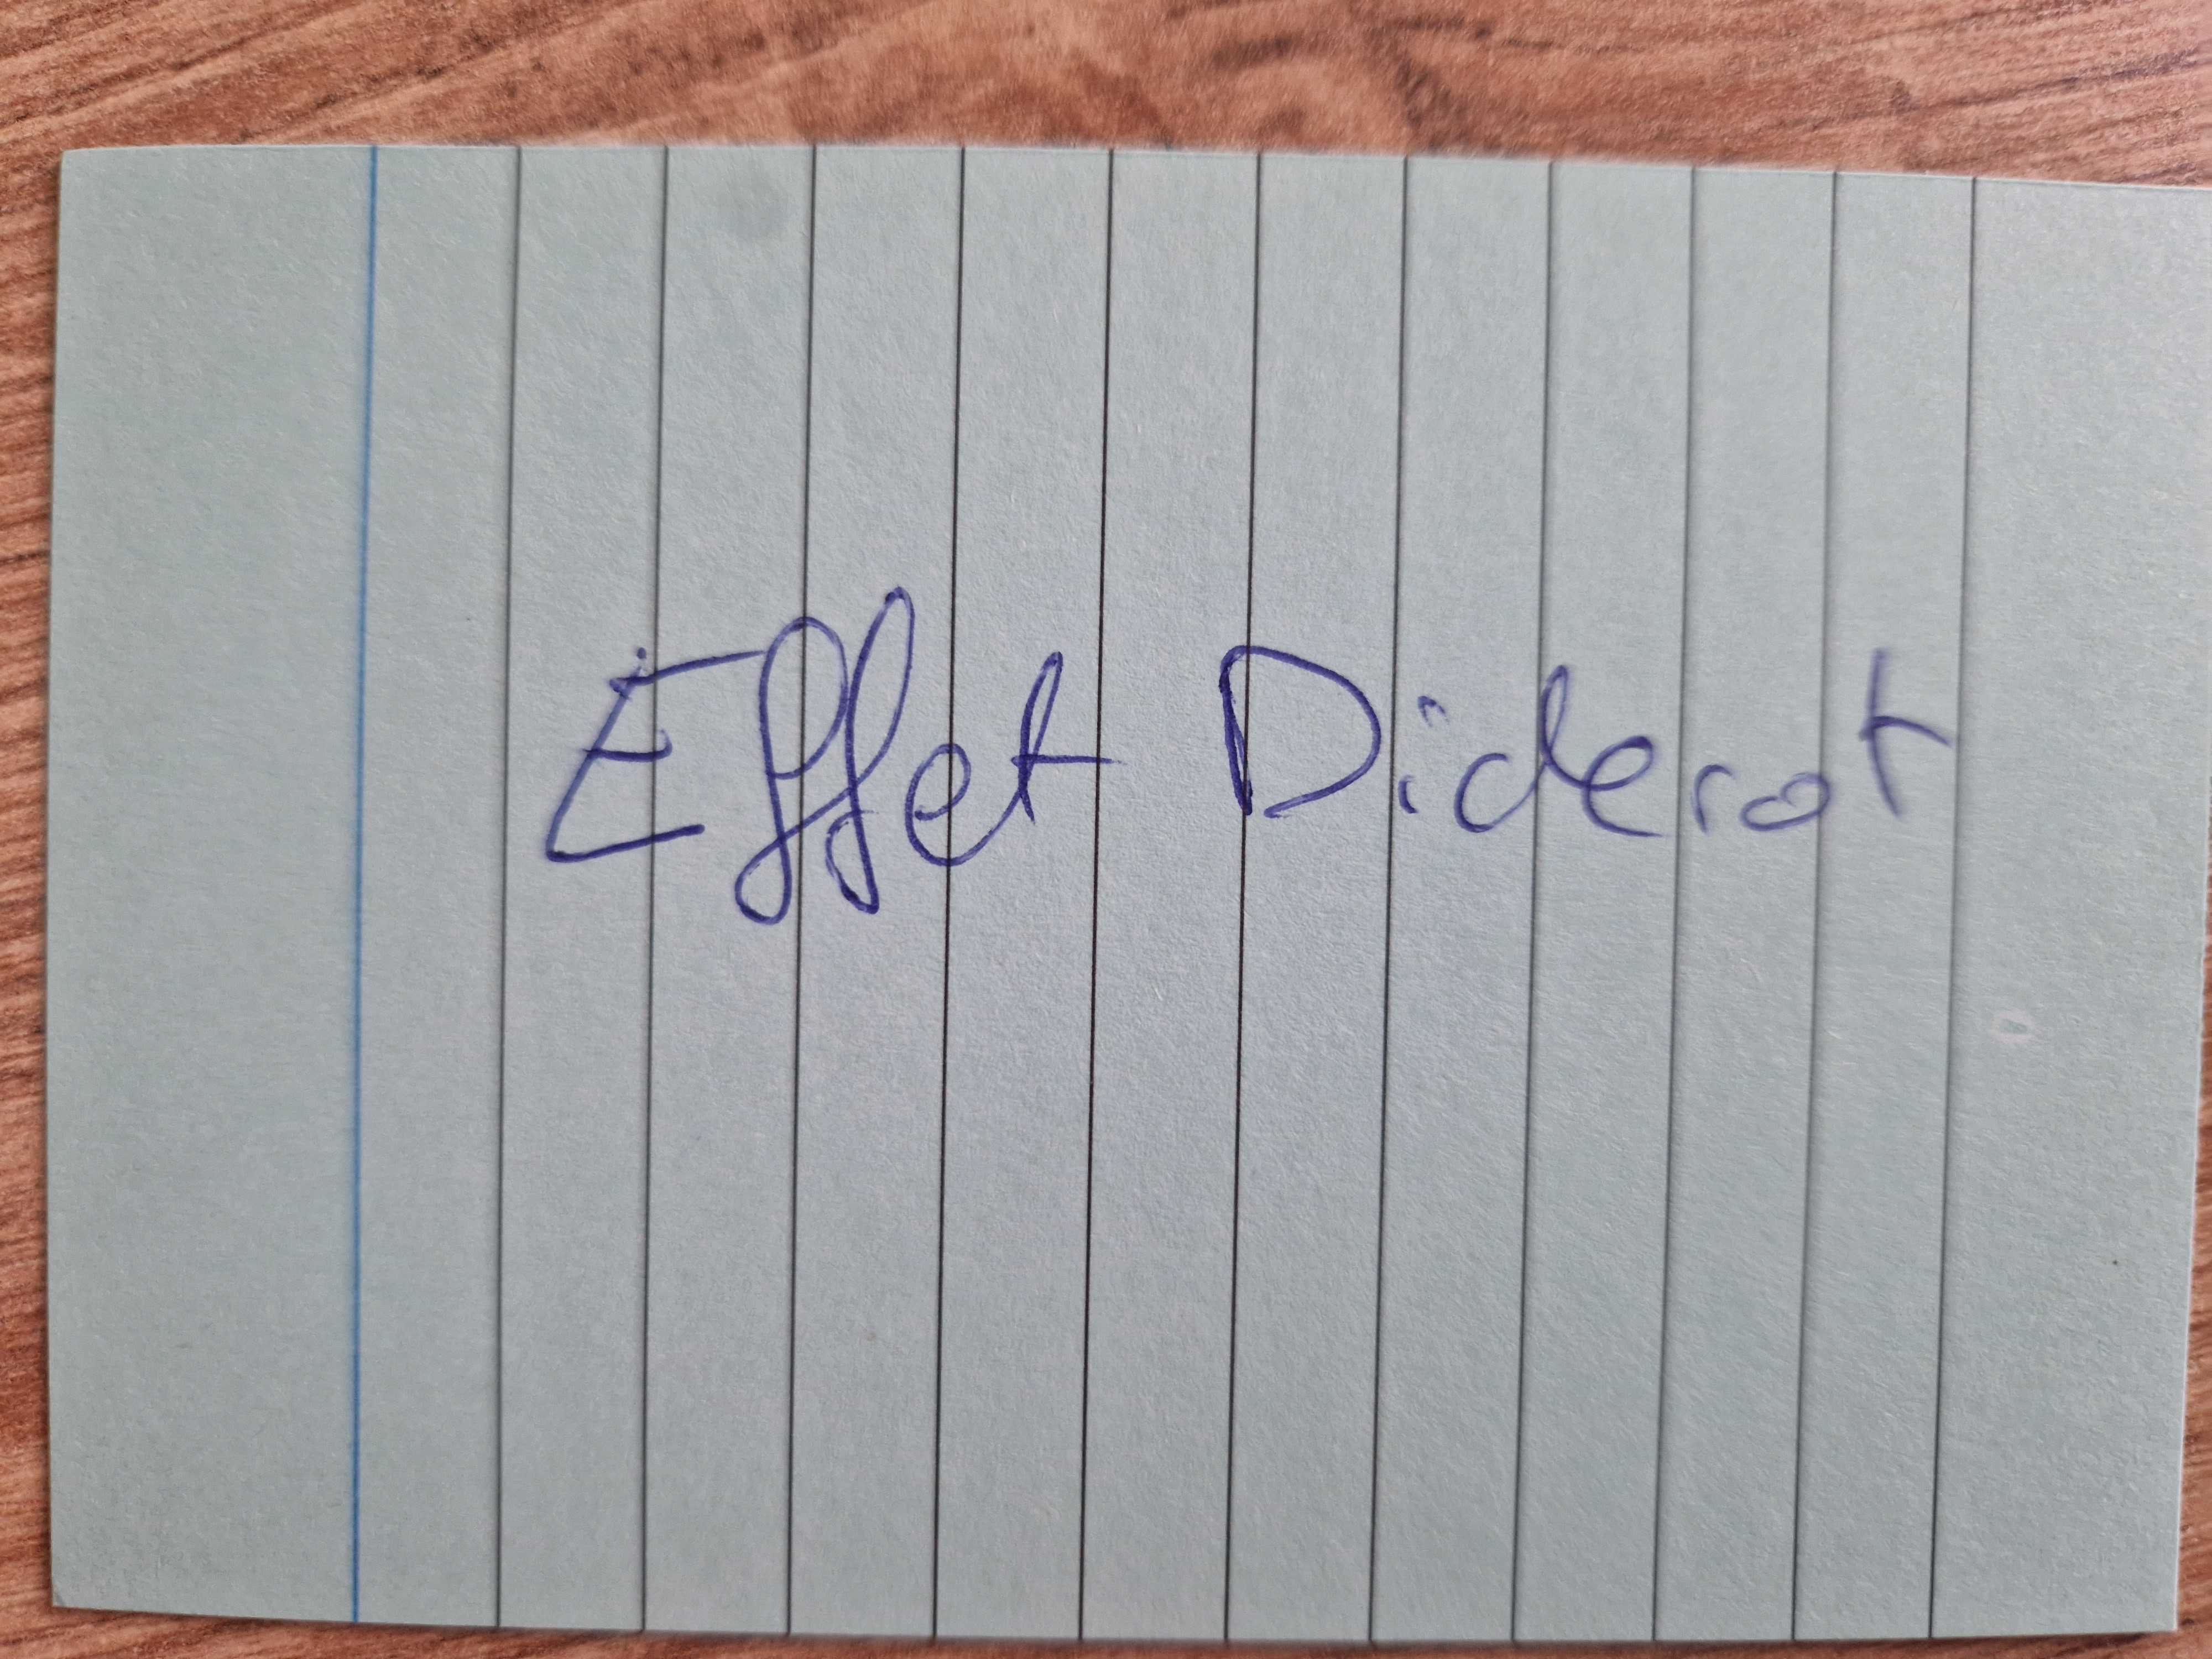 Effet Diderot